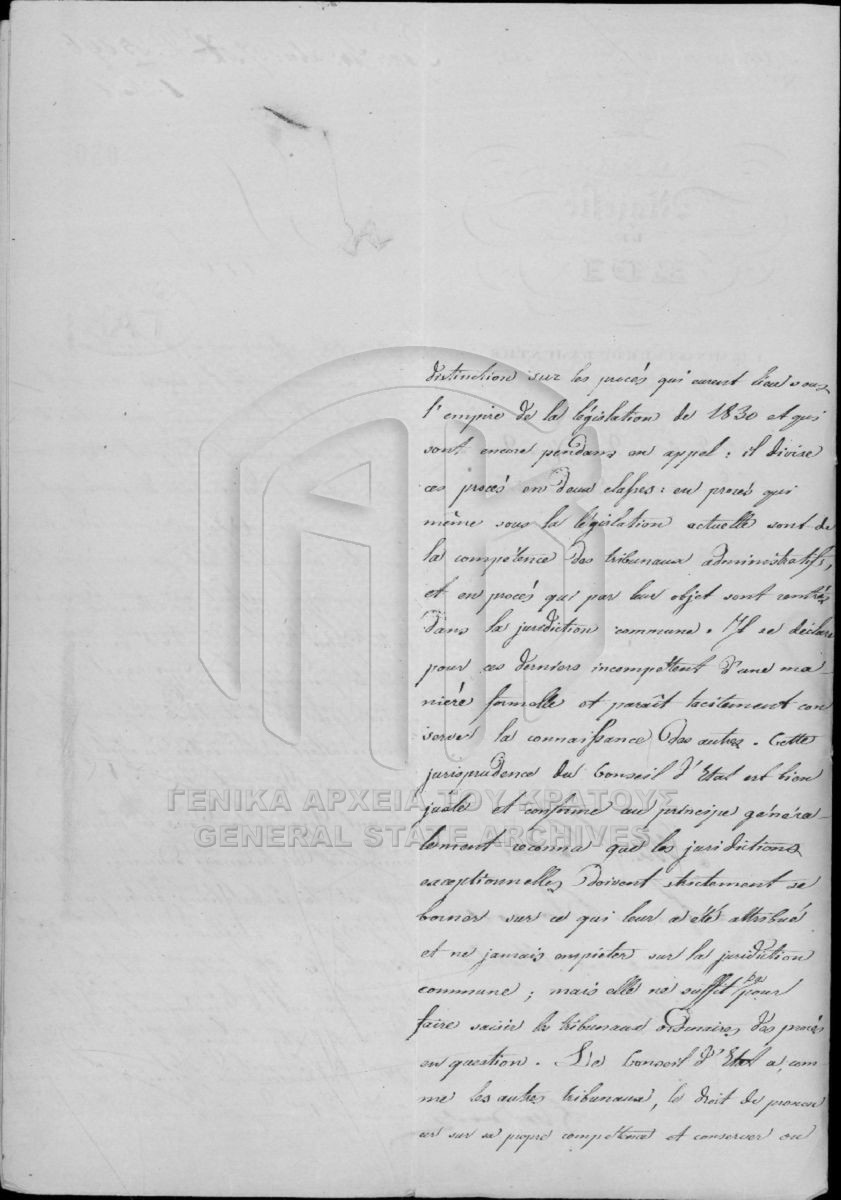 distinction sur les procés qui eurent lieu sous
l'empire de la législation de 1830 et qui
sont encore pendans en appel: il divise
ces procés en deux classes: en procés qui
même sous la législation actuelle sont de
la compétence des tribunaux administratifs,
et en procés qui par leur objet sont rentrés
dans la juridiction commune. Il se déclare
pour ces derniers incompettent d'une ma-
nière formelle et paraît tacitement con
server la connaissance des autres. Cette
jurisprudence du Conseil d'Etat est bien
juste et conforme au principe généra-
lement reconnu que les juridictions
exceptionnelles doivent strictement se
borner sur ce qui leur a été attribué
et ne jamais empiéter sur la juridiction
commune; mais elle ne suffit pas pour
faire saisir les tribunaux ordinaires des procés
en question. Le Conseil d'Etat a, com-
me les autres tribunaux, le droit de pronon
cer sur sa propre compettence et conserver ou
ΓΕΝΙΚΑ ΑΡΧΕΙΑ ΤΟΥ ΚΡΑΤΟΥΣ
GENERAL STATE ARCHIVES